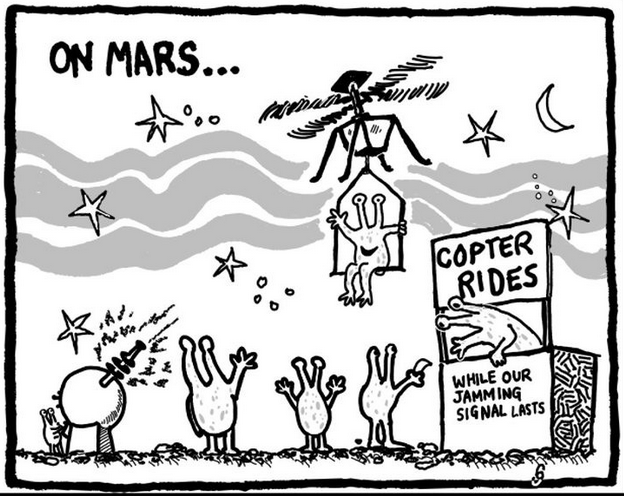 ON MARS...
COPTER
RIDES
WHILE OUR
JAMMING
SIGNAL LASTS